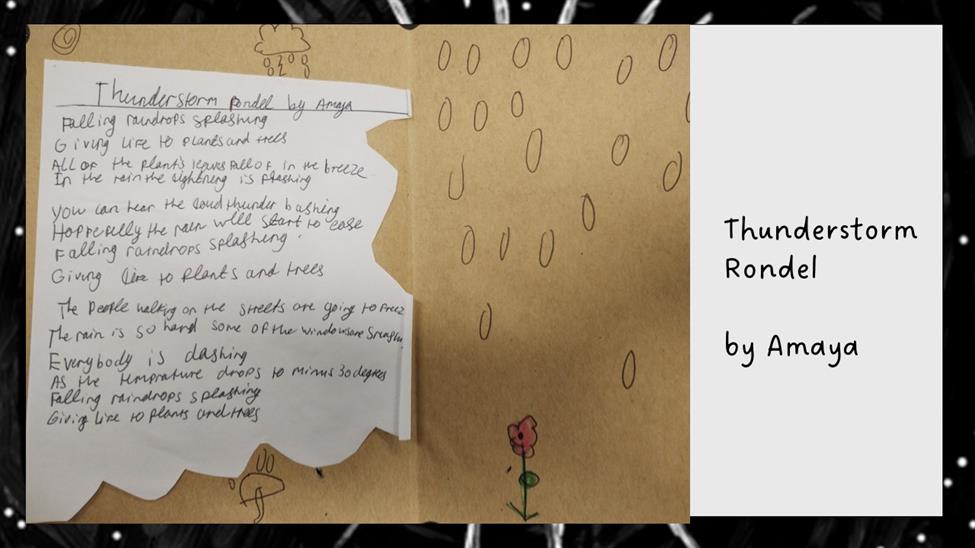 Thunderstorm Rondel by Amaya
Falling raindrops splashing
Giving life to plants and trees
All of the plants leaves fall of in the breeze
In the rain the lightning is flashing
You can hear the loud thunder bashing
Hoppefully the rain will start to ease
Falling raindrops splashing
Giving life to plants and trees
The People walking on the streets are going to freez
The rain is so hard some of the windows are
Everybody is dashing
As the temprature drops to minus 30 degrees
Falling raindrops splashing
Giving life to plants and trees
Thunderstorm
Rondel
by Amaya